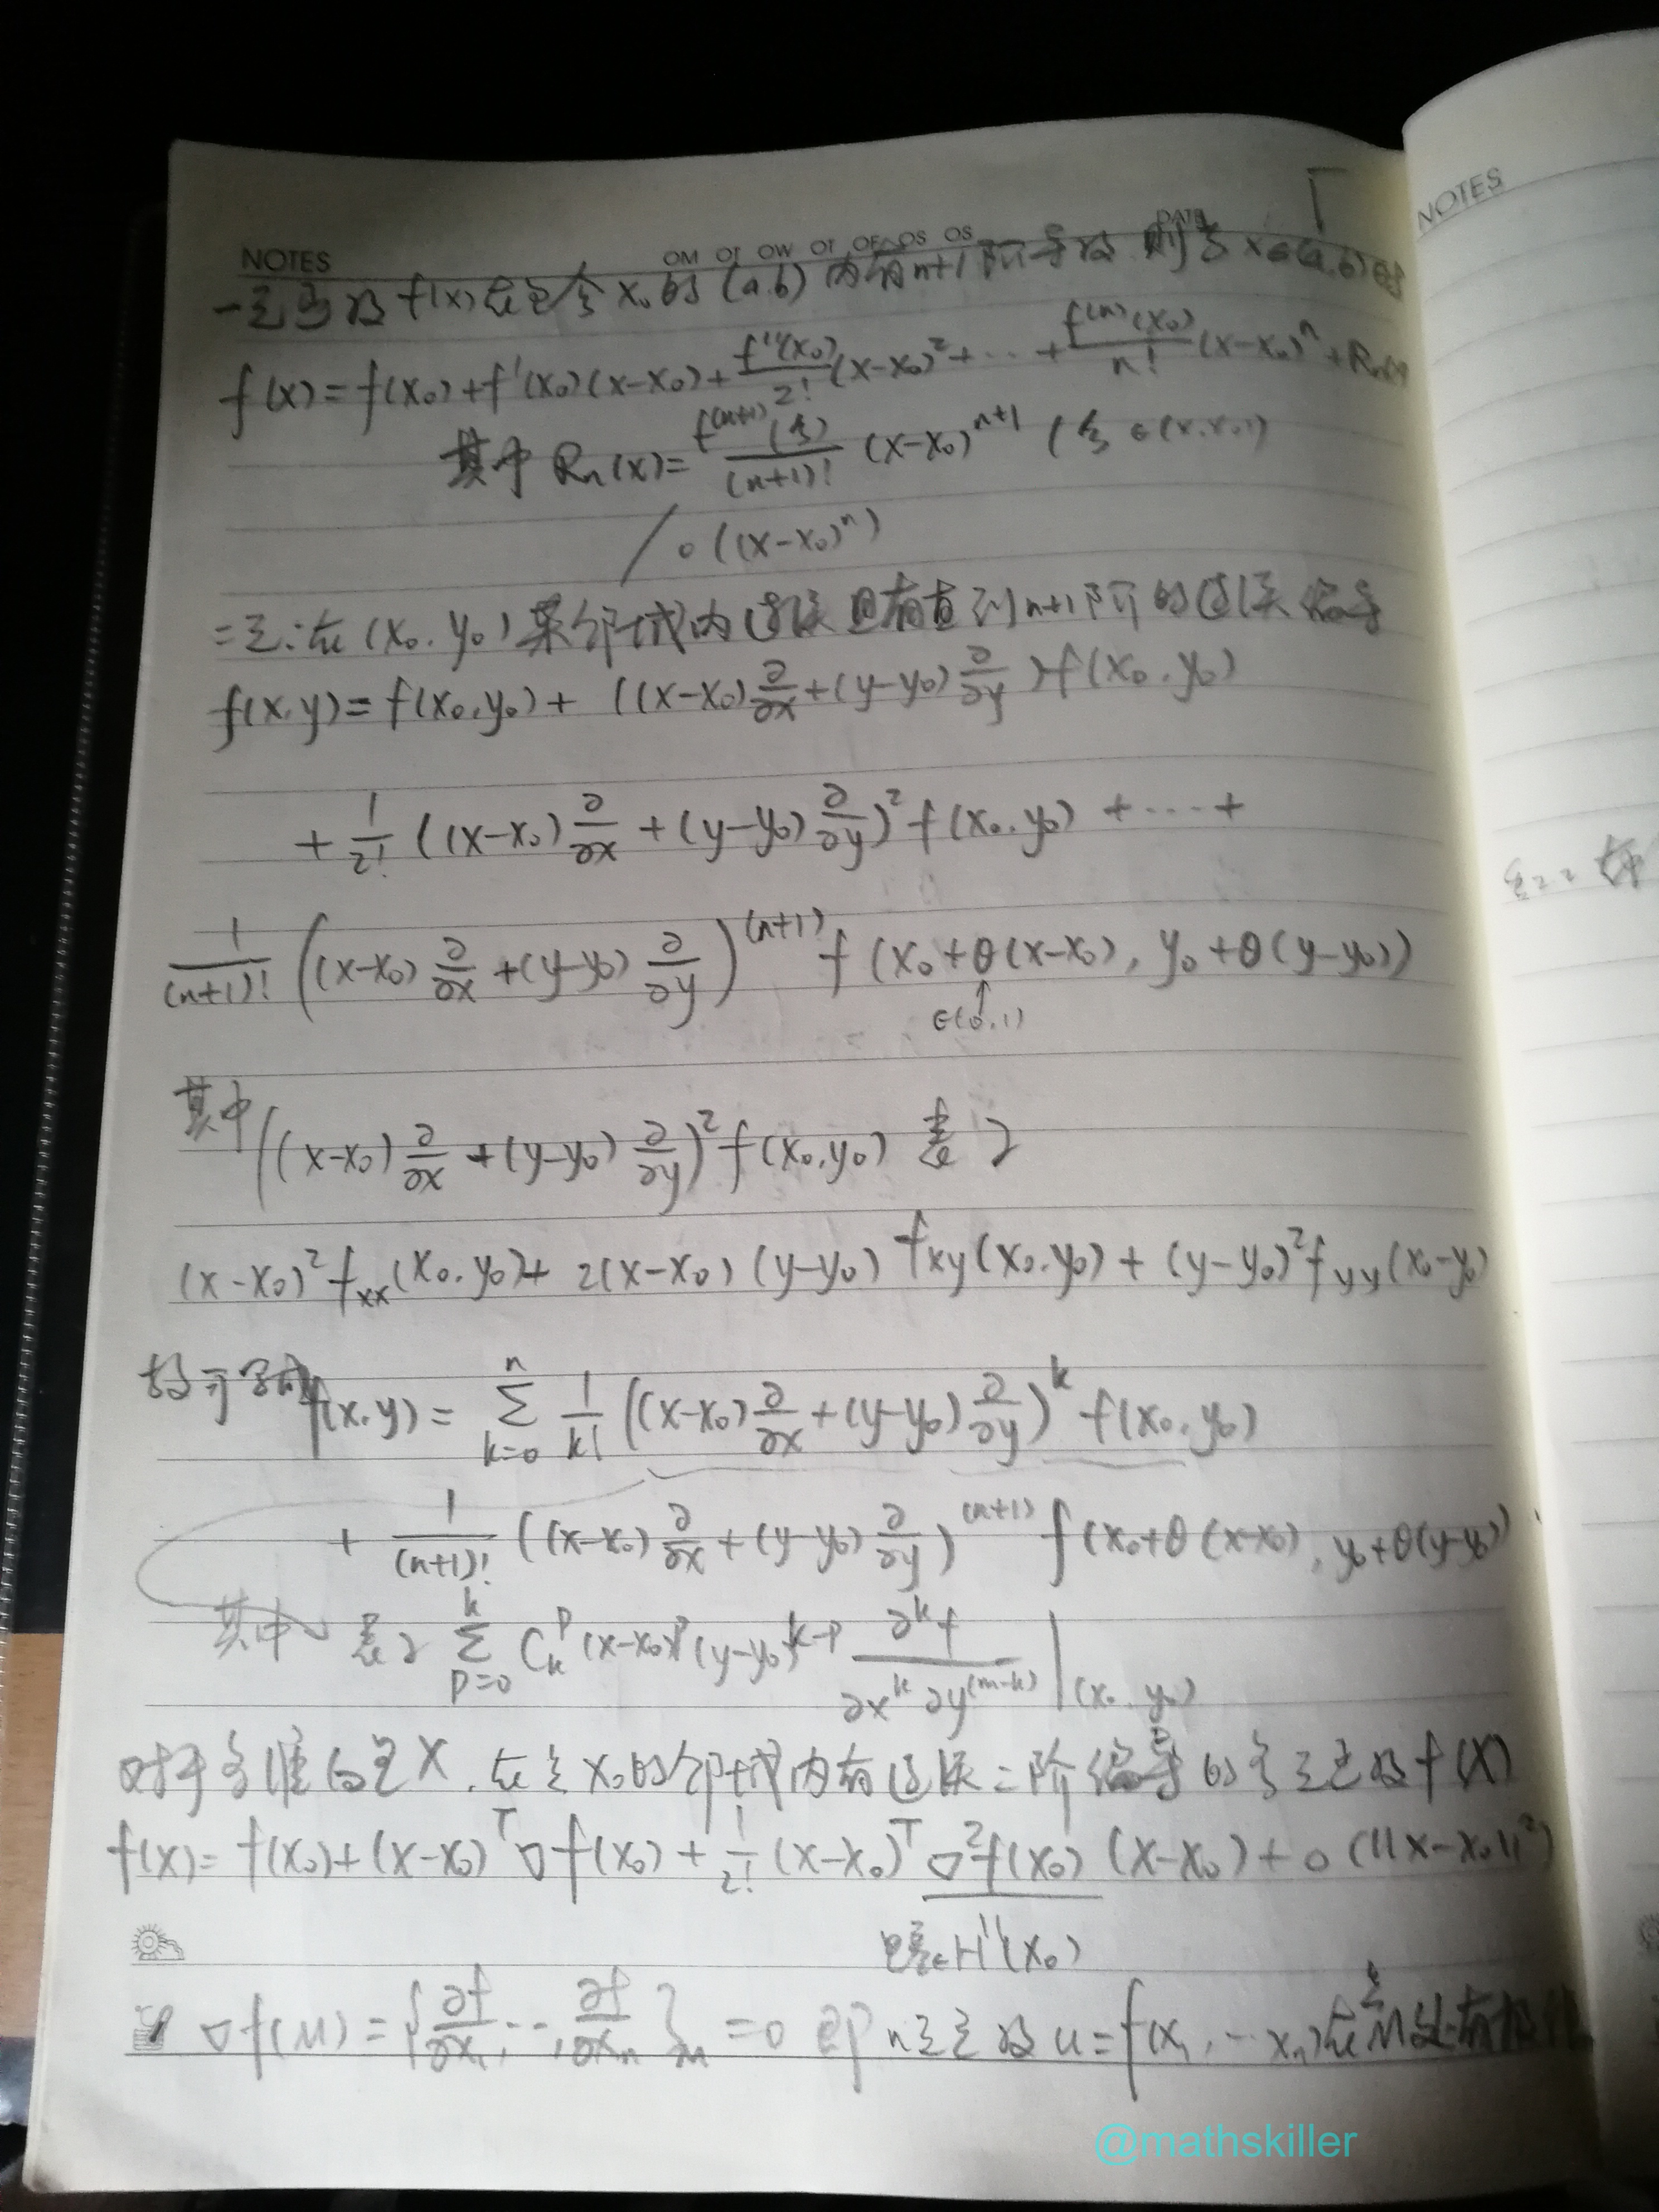 NOTES
DATE
NOTES
一元函数 f(x) 在包含 x₀ 的 (a,b) 内有 n+1 阶导数 则当 x∈(a,b) 时
f(x)=f(x₀)+f'(x₀)(x-x₀)+f''(x₀)/2!(x-x₀)²+…+f⁽ⁿ⁾(x₀)/n!(x-x₀)ⁿ+Rₙ(x)
其中 Rₙ(x)=f⁽ⁿ⁺¹⁾(ξ)/(n+1)! (x-x₀)ⁿ⁺¹ (ξ∈(x,x₀))
/ o((x-x₀)ⁿ)
二元:在(x₀,y₀)某邻域内连续且有直到n+1阶的连续偏导
f(x,y)=f(x₀,y₀)+ ((x-x₀)∂/∂x+(y-y₀)∂/∂y)f(x₀,y₀)
+ 1/2! ((x-x₀)∂/∂x+(y-y₀)∂/∂y)² f(x₀,y₀) +….+
1/(n+1)! ((x-x₀)∂/∂x+(y-y₀)∂/∂y)⁽ⁿ⁺¹⁾ f(x₀+θ(x-x₀), y₀+θ(y-y₀))
↑
∈(0,1)
其中 ((x-x₀)∂/∂x+(y-y₀)∂/∂y)² f(x₀,y₀) 表示
(x-x₀)² fxx(x₀,y₀)+ 2(x-x₀)(y-y₀) fxy(x₀,y₀)+(y-y₀)² fyy(x₀-y₀)
f(x,y)= Σ_{k=0}^{n} 1/k! ((x-x₀)∂/∂x+(y-y₀)∂/∂y)^k f(x₀,y₀)
+ 1/(n+1)! ((x-x₀)∂/∂x+(y-y₀)∂/∂y)⁽ⁿ⁺¹⁾ f(x₀+θ(x-x₀), y₀+θ(y-y₀))
其中 表示 Σ_{p=0}^{k} C_k^p (x-x₀)^p (y-y₀)^{k-p} ∂^k f/∂x^k ∂y^{(m-k)} |(x₀,y₀)
对于多维向量X,在点X₀的邻域内有连续二阶偏导的多元函数f(X)
f(X)= f(X₀)+(X-X₀)ᵀ∇f(X₀)+1/2!(X-X₀)ᵀ∇²f(X₀)(X-X₀)+o(||X-X₀||²)
H(X₀)
∇f(M)={∂f/∂x₁,…,∂f/∂xₙ}_M =0 即 n元函数 u=f(x₁,…xₙ)在点M处有极值
@mathskiller